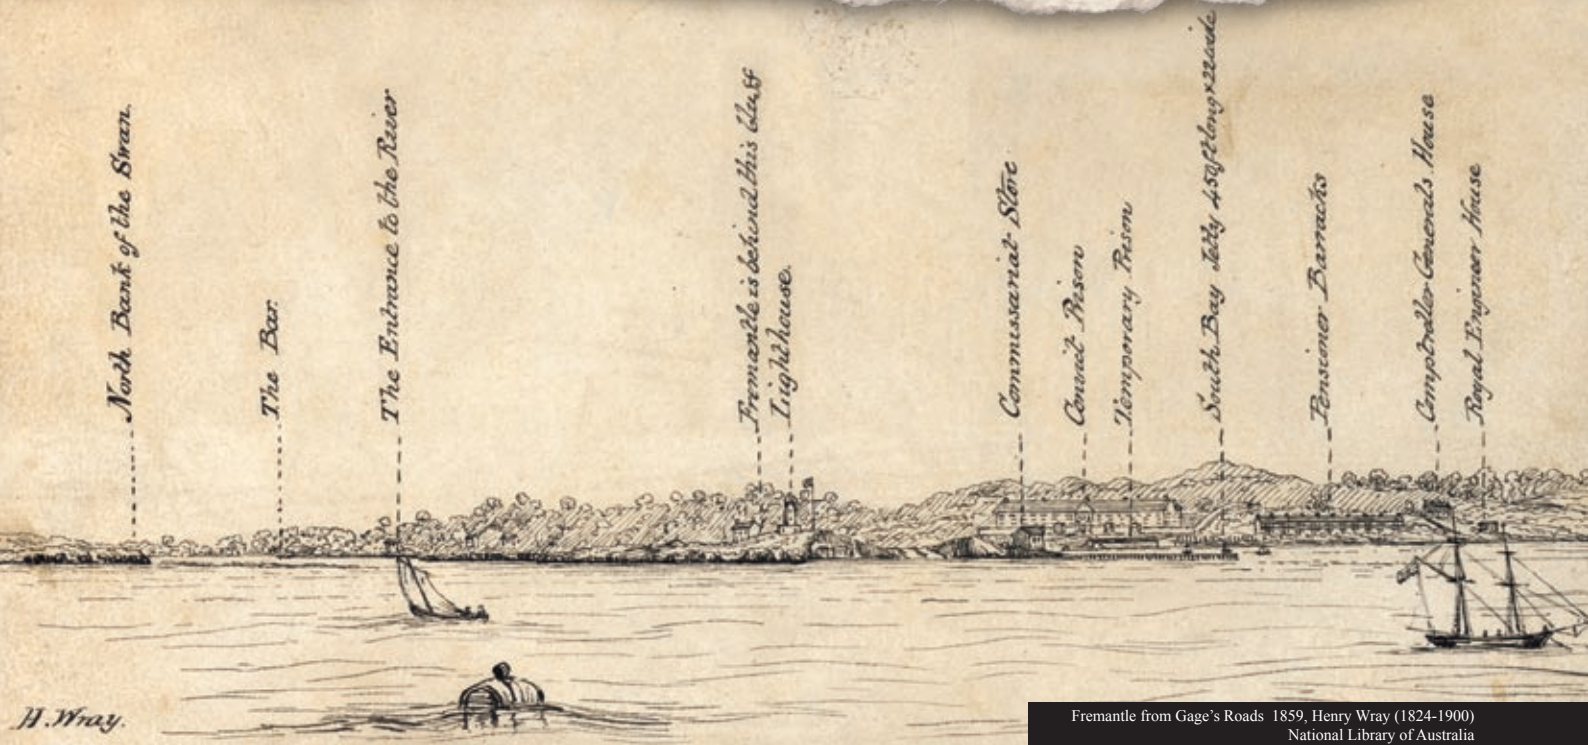 North Bank of the Swan.
The Bar.
The Entrance to the River
Fremantle is behind this bluff
Lighthouse.
Commissariat Store
Convict Prison
Temporary Prison
South Bay Jetty 450ft long × 22 wide
Pensioner Barracks
Comptroller Generals House
Royal Engineer House
H. Wray.
Fremantle from Gage's Roads 1859, Henry Wray (1824-1900)
National Library of Australia